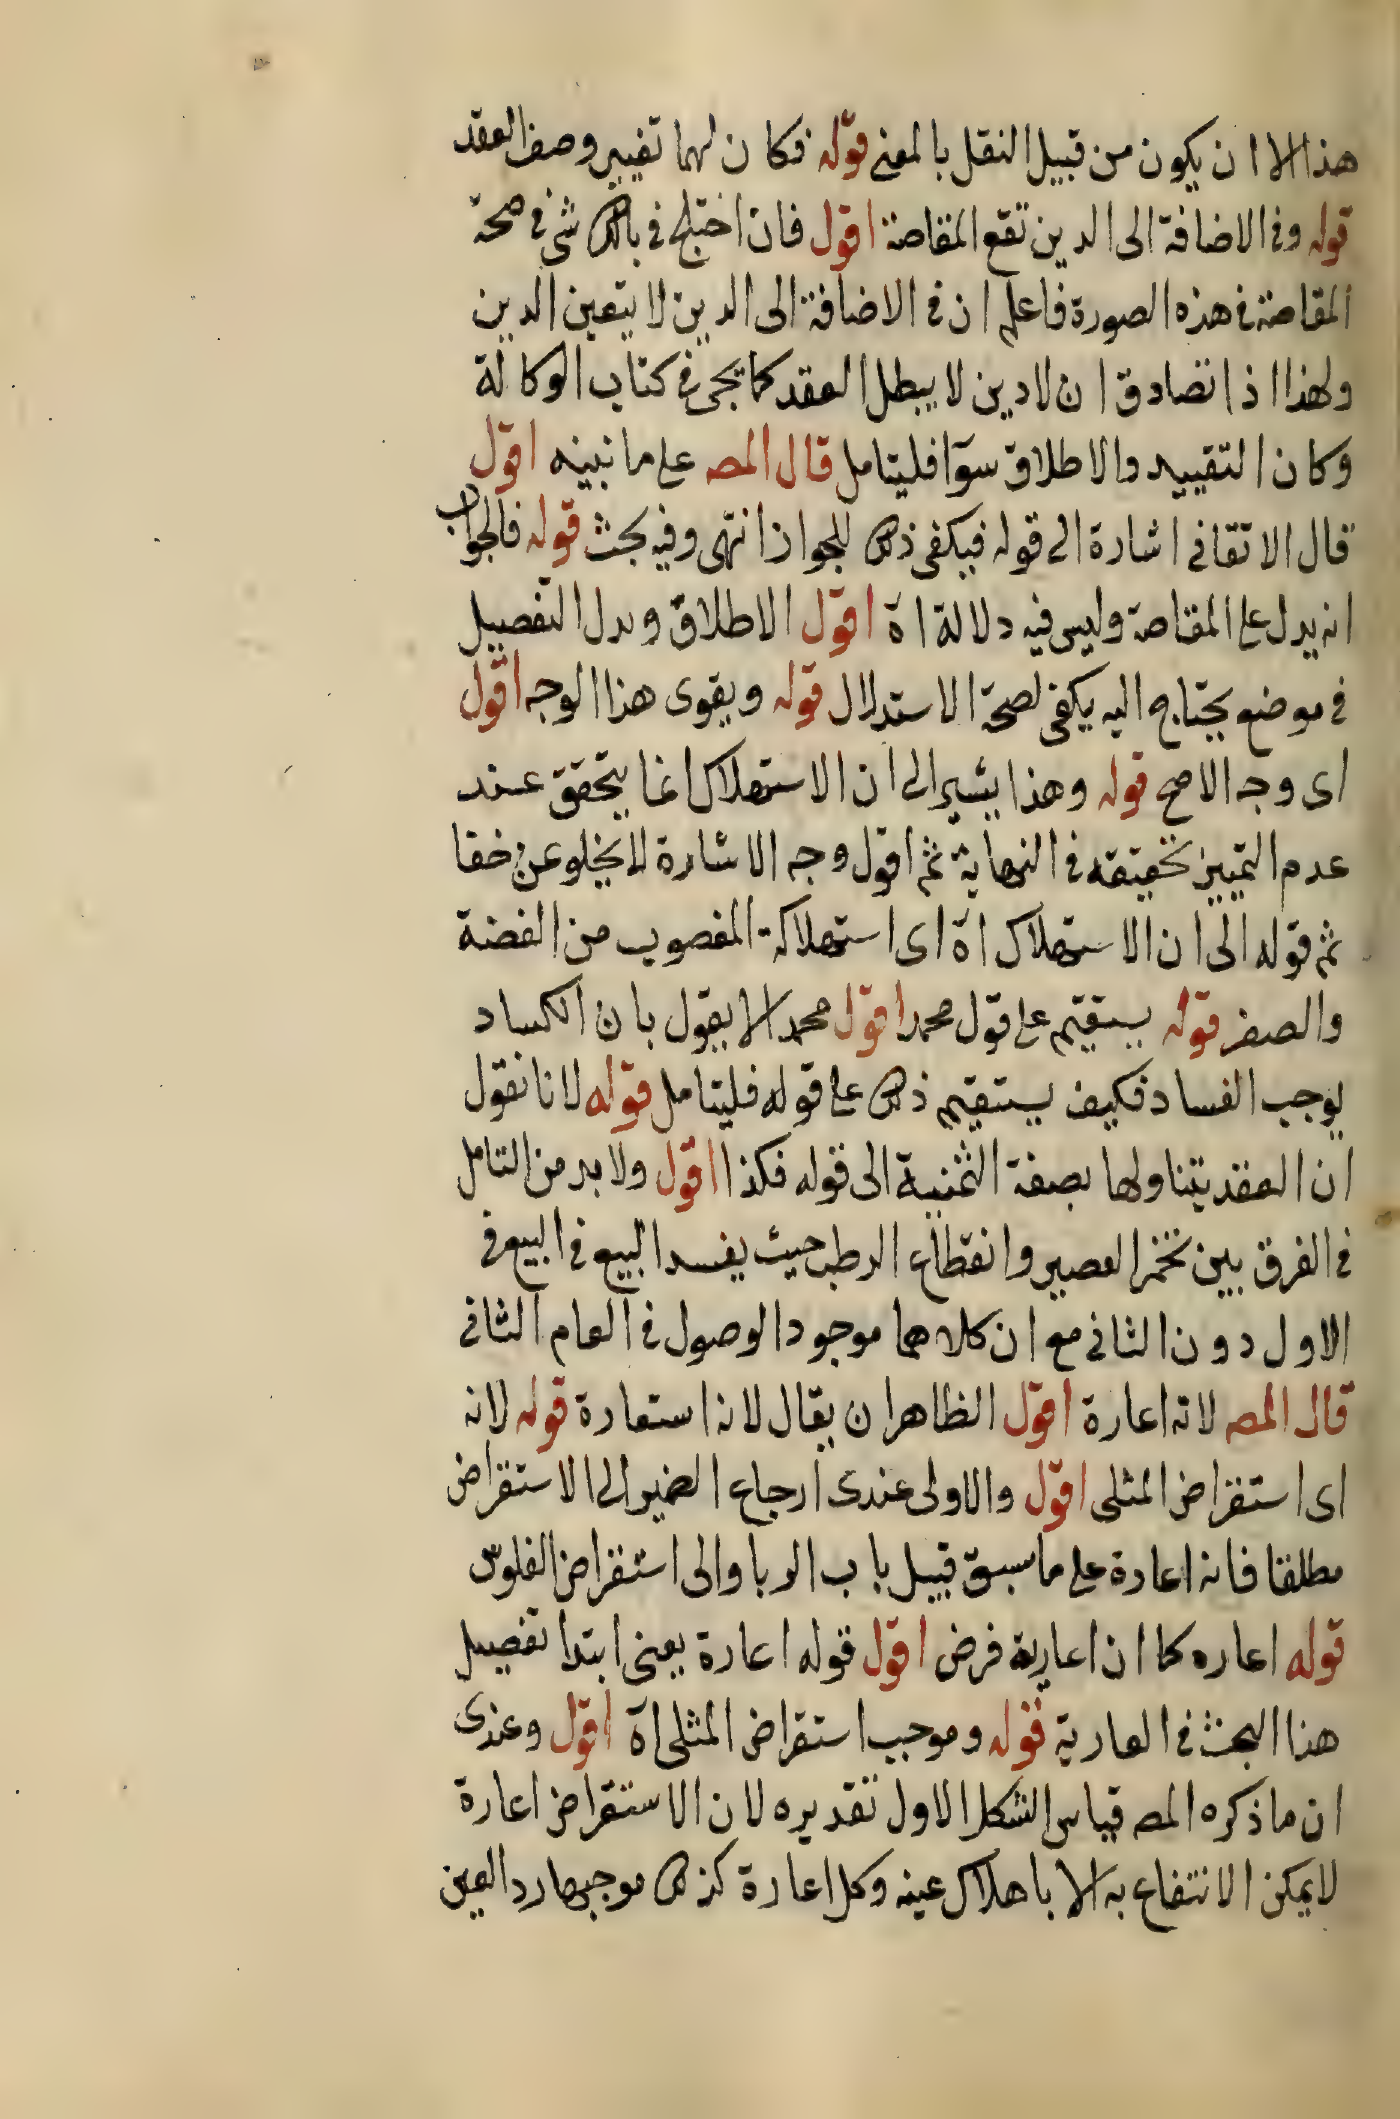 هذا الا ان يكون من قبيل النقل بالمعنى قوله فكان لهما تغيير وصف العقد
قوله وفي الاضافة الى الدين تقع المقاصة اقول فان اختلج في بالك شي في صحة
المقاصة في هذه الصورة فاعلم ان في الاضافة الى الدين لا يتعين الدين
ولهذا اذا تصادق ان لا دين لا يبطل العقد كما يجي في كتاب الوكالة
وكان التقييد والاطلاق سوآ فليتامل قال المص على ما نبينه اقول
قال الاتقاني اشارة الى قوله فيكفي ذلك للجواز انتهى وفيه بحث قوله فالجواب
انه يدل على المقاصة وليس فيه دلالة اه اقول الاطلاق وبدل التفصيل
في موضع يحتاج اليه يكفي لصحة الاستدلال قوله ويقوى هذا الوجه اقول
اى وجه الاصح قوله وهذا يشير الى ان الاستهلاك انما يتحقق عند
عدم التمييز تحقيقه في النهاية ثم اقول وجه الاشارة لا يخلو عن خفا
ثم قوله الى ان الاستهلاك اه اى استهلاكه المغصوب من الفضة
والصفر قوله يستقيم على قول محمد اقول محمد لا يقول بان الكساد
يوجب الفساد فكيف يستقيم ذلك على قوله فليتامل قوله لانا نقول
ان العقد يتناولها بصفة الثمنية الى قوله فكذا اقول ولا بد من التامل
في الفرق بين تخمر العصير وانقطاع الرطب حيث يفسد البيع في البيع في
الاول دون الثاني مع ان كلاهما موجود الوصول في العام الثاني
قال المص لانه اعارة اقول الظاهر ان يقال لانه استعارة قوله لانه
اى استقراض المثلى اقول والاولى عندى ارجاع الضمير الى الاستقراض
مطلقا فانه اعارة على ما سبق قبيل باب الربا والى استقراض الفلوس
قوله اعاره كما ان اعارية قرض اقول قوله اعارة يعنى ابتدا تفصيل
هذا البحث في العارية قوله وموجب استقراض المثلى اه اقول وعندى
ان ما ذكره المص قياس الشكل الاول تقديره لان الاستقراض اعارة
لا يمكن الانتفاع به الا باهلاك عينه وكل اعارة كذلك موجبها رد العين